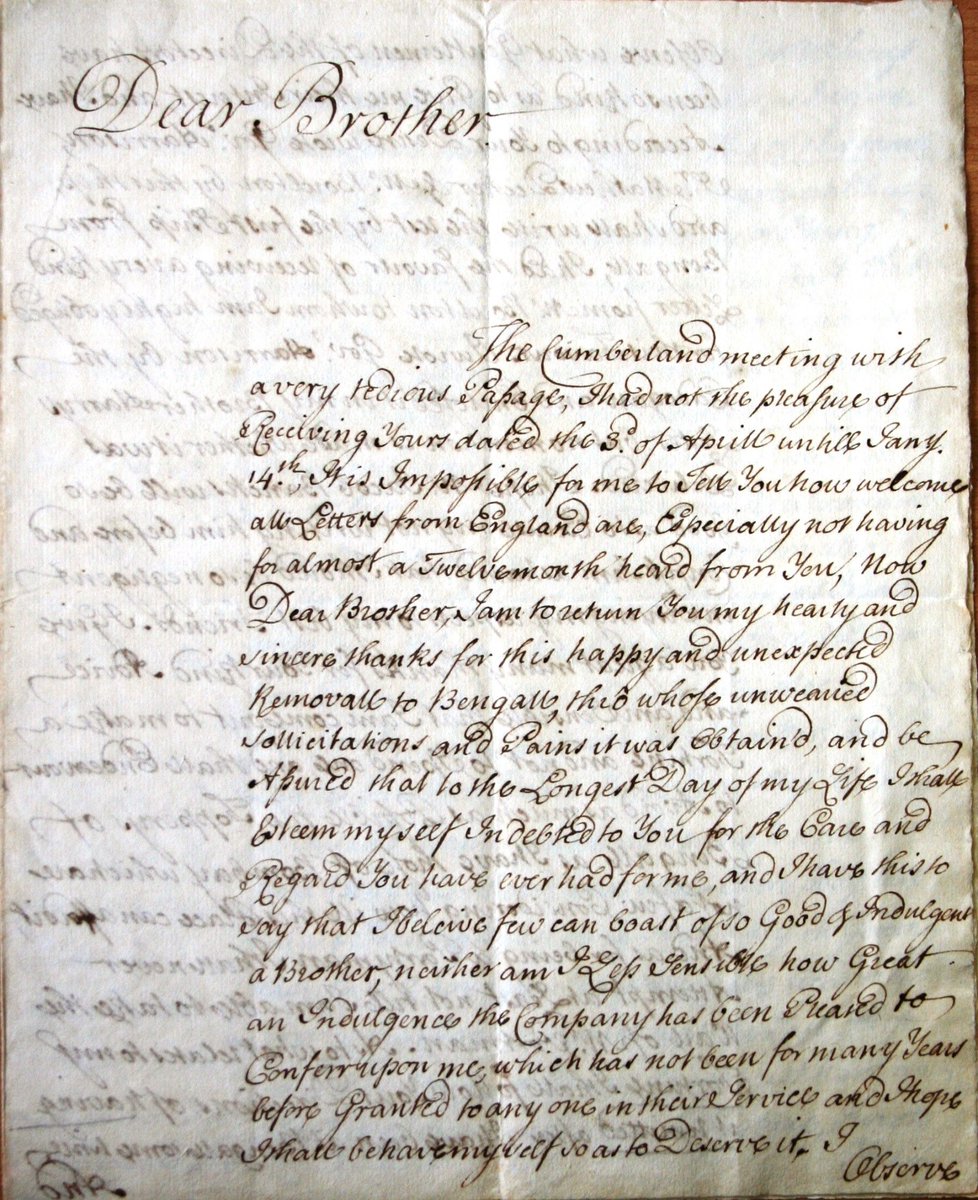 Dear Brother
The Cumberland meeting with
a very tedious Passage, I had not the pleasure of
Receiving Yours dated the 3d. of Aprill untill Jany.
14.th It is Impossible for me to Tell You how welcome
all Letters from England are, Especially not having
for almost a Twelvemonth heard from You, Now
Dear Brother, I am to return You my hearty and
sincere thanks for this happy and unexpected
Removall to Bengall, thro whose unwearied
sollicitations and Pains it was Obtain'd, and be
Assured that to the Longest Day of my Life I shall
Esteem my self Indebted to You for the Care and
Regard You have ever had for me, and I have this to
say that I beleive few can boast of so Good & Indulgent
a Brother, neither am I Less Sensible how Great
an Indulgence the Company has been Pleased to
Conferr upon me, which has not been for many Years
before Granted to any one in their Service and I hope
I shall behave my self so as to Deserve it. I
Observe